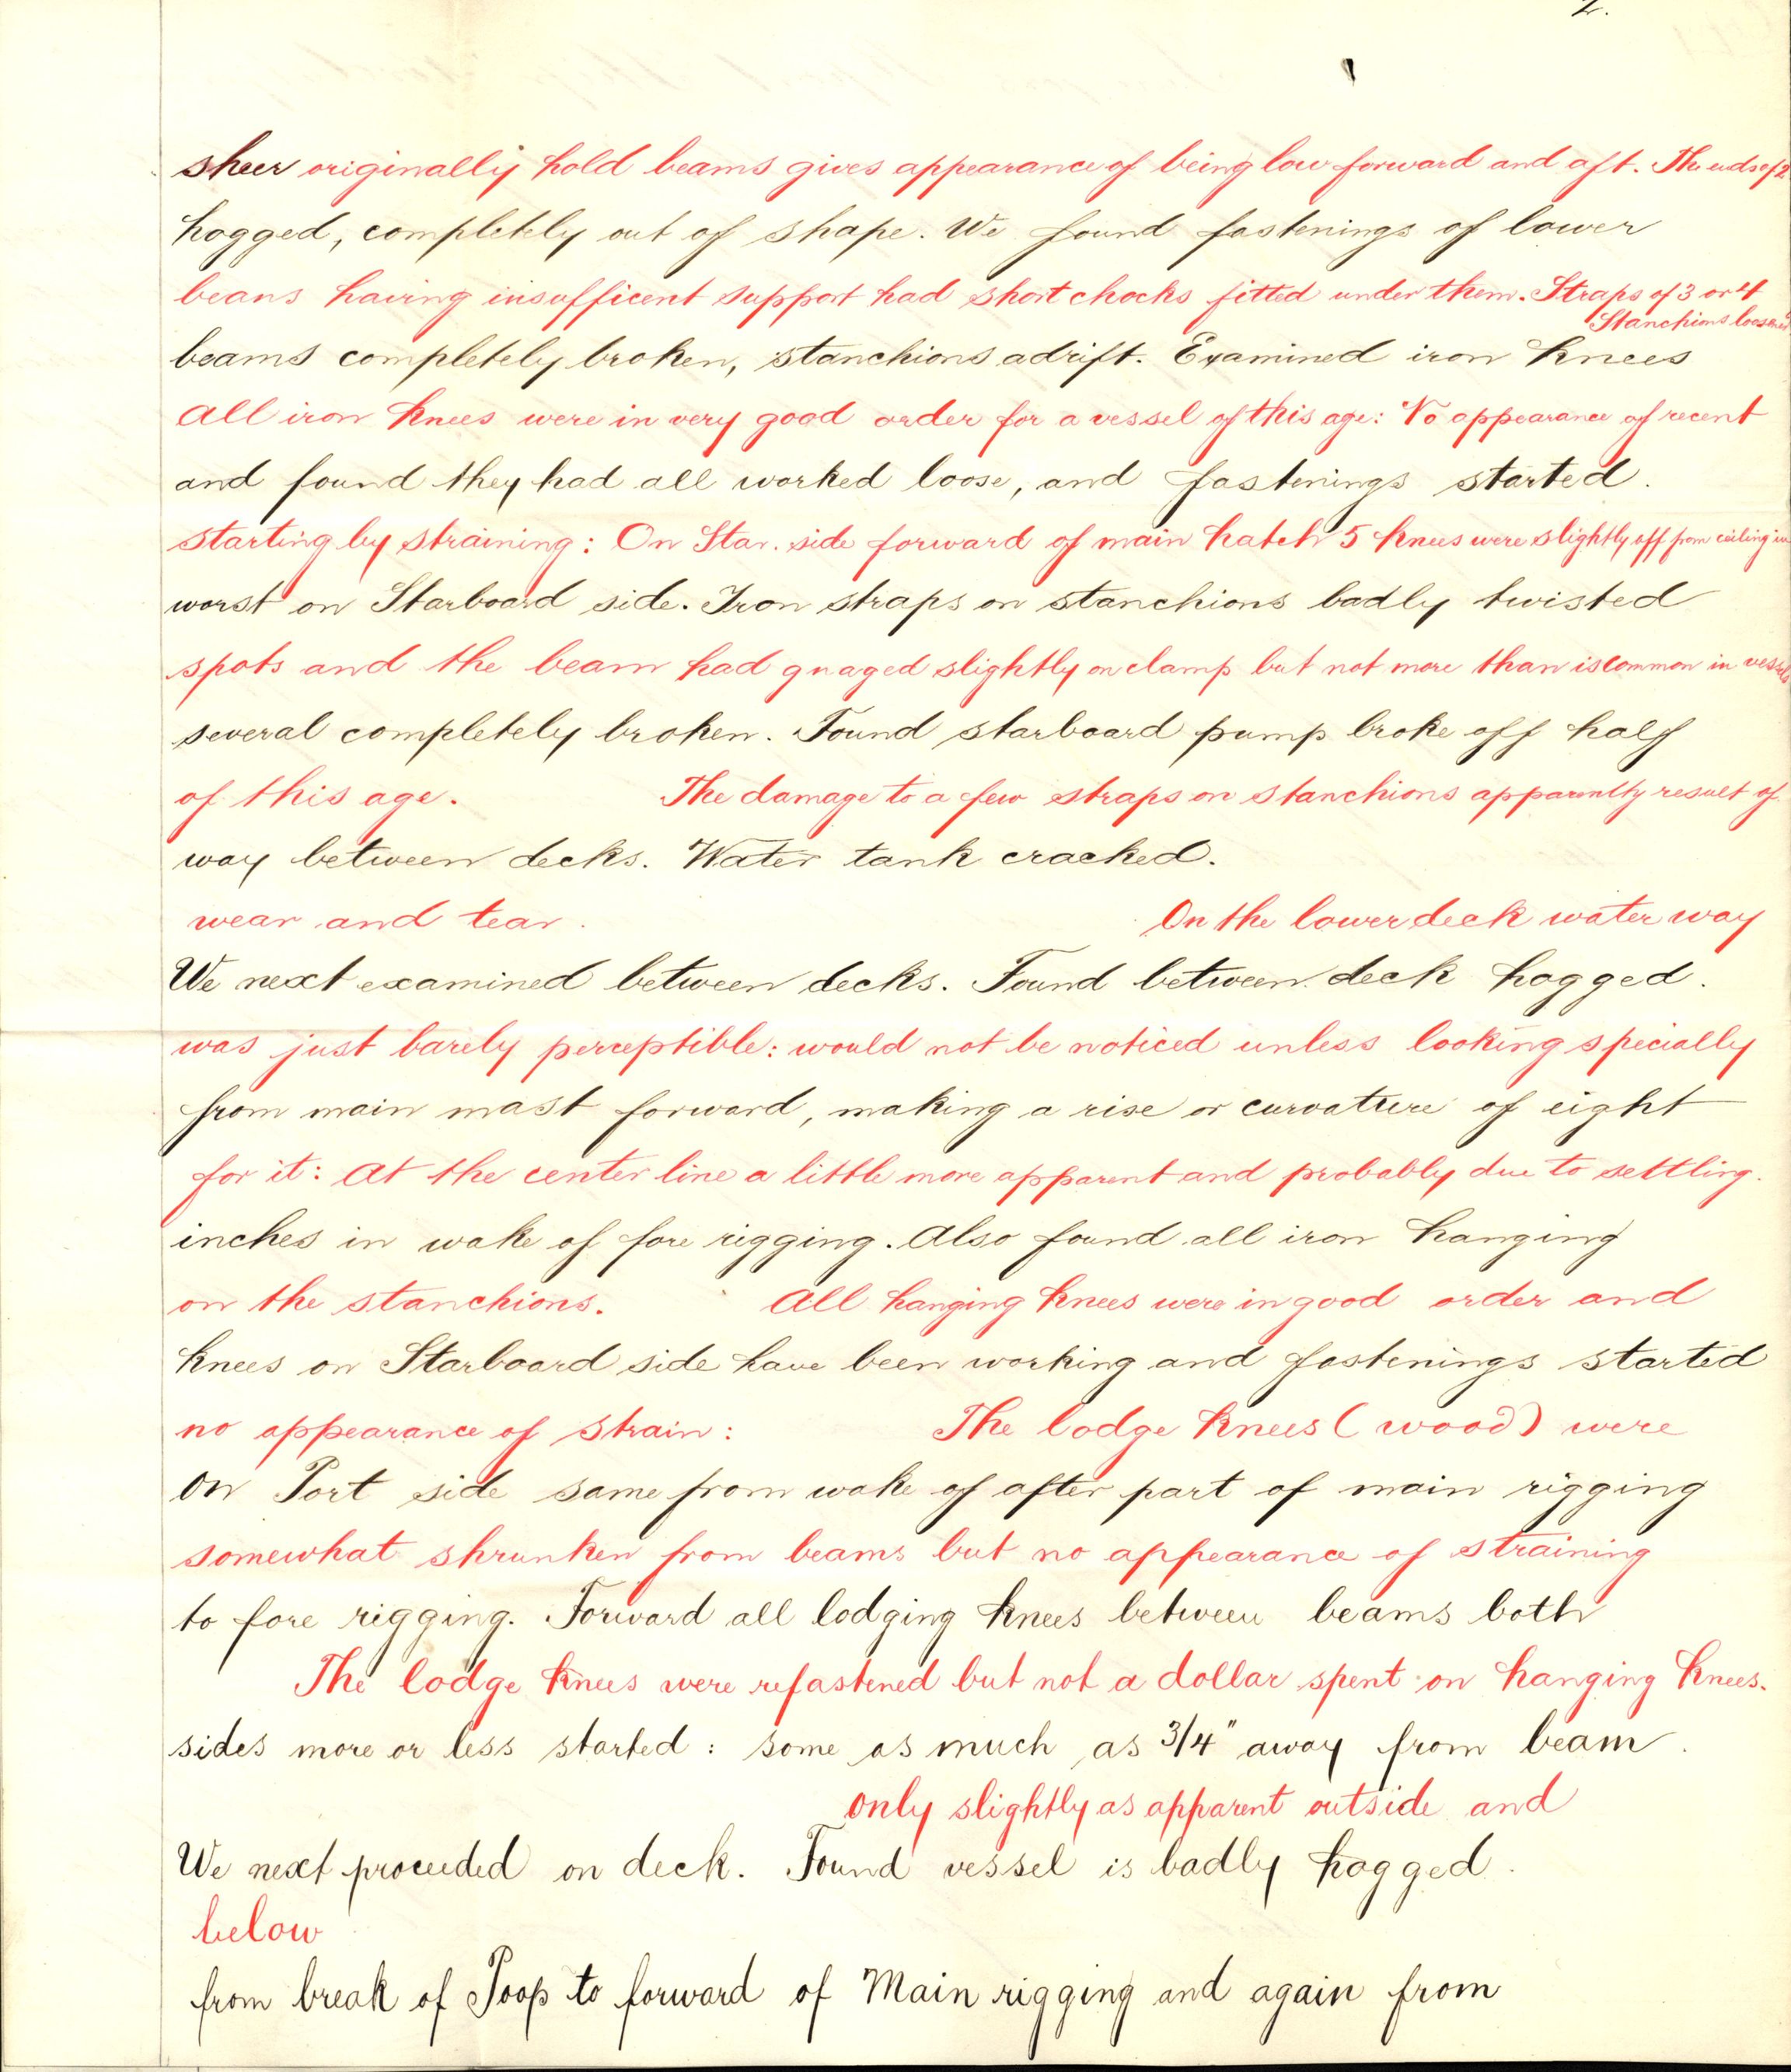 2.
sheer originally hold beams gives appearance of being low forward and aft. The ends of 2
hogged, completely out of shape. We found fastenings of lower
beans having insufficent support had short chocks fitted under them. Straps of 3 or 4
Stanchions loosened
beams completely broken, stanchions adrift. Examined iron knees
All iron knees were in very good order for a vessel of this age: No appearance of recent
and found they had all worked loose, and fastenings started.
starting by straining: On Star. side forward of main hatch 5 knees were slightly off from ceiling in
worst on Starboard side. Iron straps on stanchions badly twisted
spots and the beam had guaged slightly on clamp but not more than is common in vessels
several completely broken. Found starboard pump broke off half
of this age. The damage to a few straps on stanchions apparently result of
way between decks. Water tank cracked.
wear and tear. On the lower deck water way
We next examined between decks. Found between deck hogged.
was just barely perceptible: would not be noticed unless looking specially
from main mast forward, making a rise or curvature of eight
for it: At the center line a little more apparent and probably due to settling.
inches in wake of fore rigging. Also found all iron hanging
on the stanchions. All hanging knees were in good order and
knees on Starboard side have been working and fastenings started
no appearance of strain: The lodge knees (wood) were
on Port side same from wake of after part of main rigging
somewhat shrunken from beams but no appearance of straining
to fore rigging. Forward all lodging knees between beams both
The lodge knees were refastened but not a dollar spent on hanging knees.
sides more or less started: some as much as 3/4" away from beam.
only slightly as apparent outside and
We next proceeded on deck. Found vessel is badly hogged.
below
from break of Poop to forward of Main rigging and again from